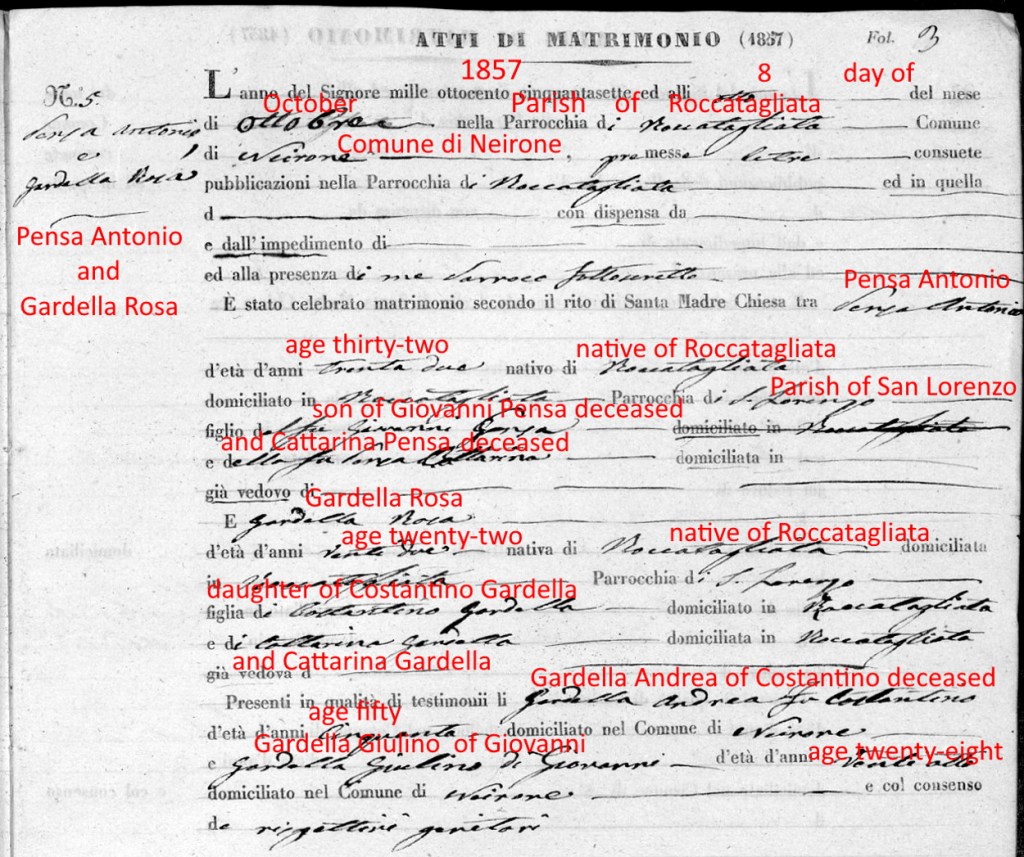 ATTI DI MATRIMONIO (1857) Fol. 3
1857 8 day of
N. 5. L'anno del Signore mille ottocento cinquantasette ed alli otto del mese
October Parish of Roccatagliata
Pensa Antonio di ottobre nella Parrocchia di Roccatagliata Comune
e
Comune di Neirone
di Neirone, premesse le tre consuete
Gardella Rosa pubblicazioni nella Parrocchia di Roccatagliata ed in quella
d con dispensa da
Pensa Antonio
and
Gardella Rosa
e dall'impedimento di
ed alla presenza di me Parroco sottoscritto
Pensa Antonio
È stato celebrato matrimonio secondo il rito di Santa Madre Chiesa tra Pensa Antonio
age thirty-two native of Roccatagliata
d'età d'anni trenta due nativo di Roccatagliata
Parish of San Lorenzo
domiciliato in Roccatagliata Parrocchia di S. Lorenzo
son of Giovanni Pensa deceased
figlio del fu Giovanni Pensa domiciliato in Roccatagliata
and Cattarina Pensa deceased
e della fu Pensa Cattarina domiciliata in
già vedovo di
Gardella Rosa
E Gardella Rosa
age twenty-two native of Roccatagliata
d'età d'anni venti due nativa di Roccatagliata domiciliata
in Roccatagliata Parrocchia di S. Lorenzo
daughter of Costantino Gardella
figlia di Costantino Gardella domiciliato in Roccatagliata
e di Cattarina Gardella domiciliato in Roccatagliata
and Cattarina Gardella
già vedova d
Gardella Andrea of Costantino deceased
Presenti in qualità di testimonii li Gardella Andrea fu Costantino
age fifty
d'età d'anni cinquanta domiciliato nel Comune di Neirone
Gardella Giulino of Giovanni age twenty-eight
e Gardella Giulino di Giovanni d'età d'anni venti otto
domiciliato nel Comune di Neirone e col consenso
de rispettivi genitori